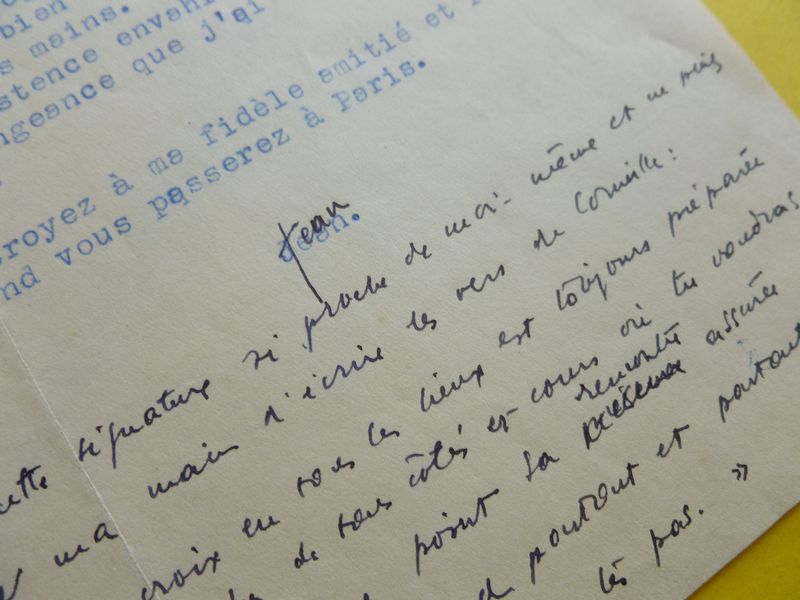 bien
s mains.
stence envahi
ngeance que j'ai
croyez à ma fidèle amitié et
nd vous passerez à Paris.
Jean
Jean.
cette signature si proche de moi-même et ne puis
ma main d'écrire les vers de Corneille:
croix en tous les lieux est toujours préparée
de tous côtés et cours où tu voudras
rencontre
point sa présence assurée
d partout et partout
tes pas. »